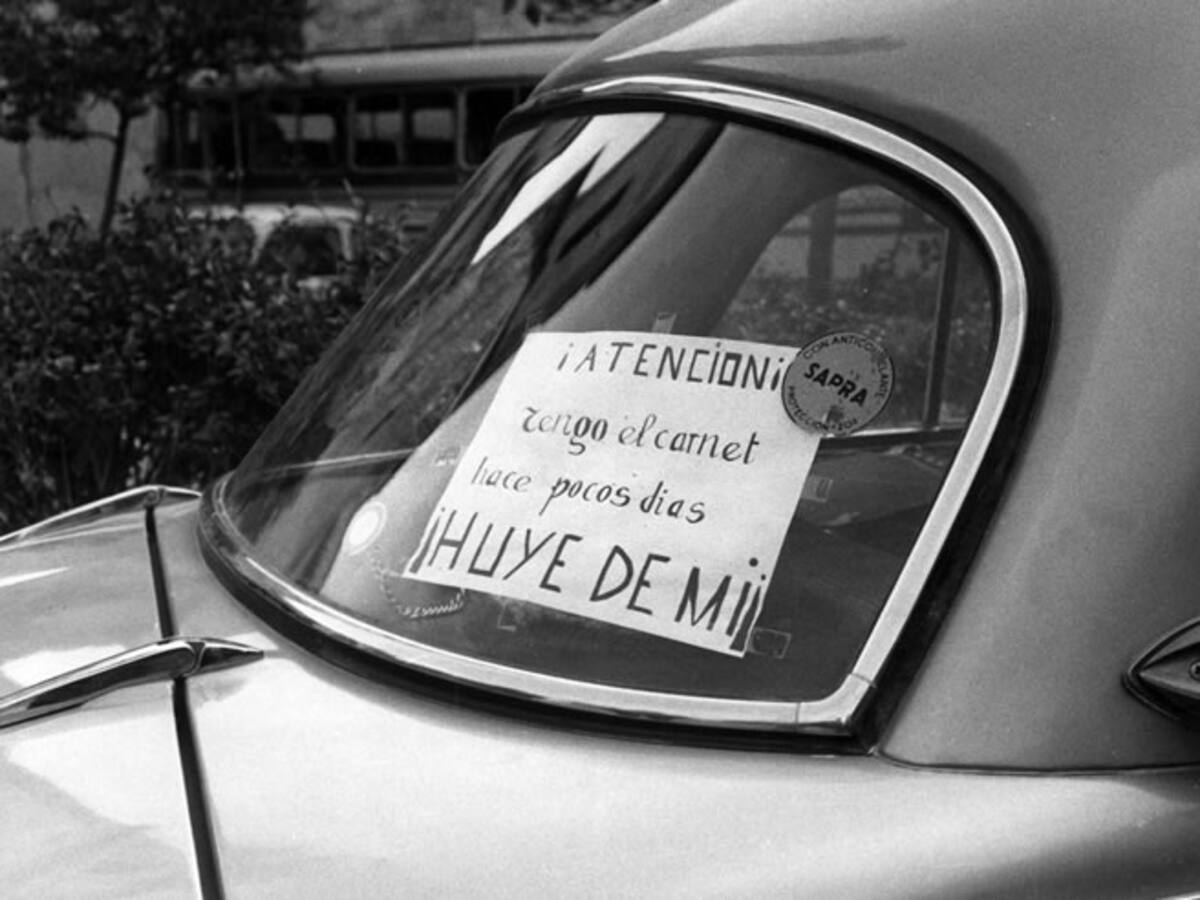 ¡ATENCIÓN¡
Tengo el carnet
hace pocos dias
¡HUYE DE MI¡¡
CON ANTICONGELANTE
SAPRA
PROTECCION